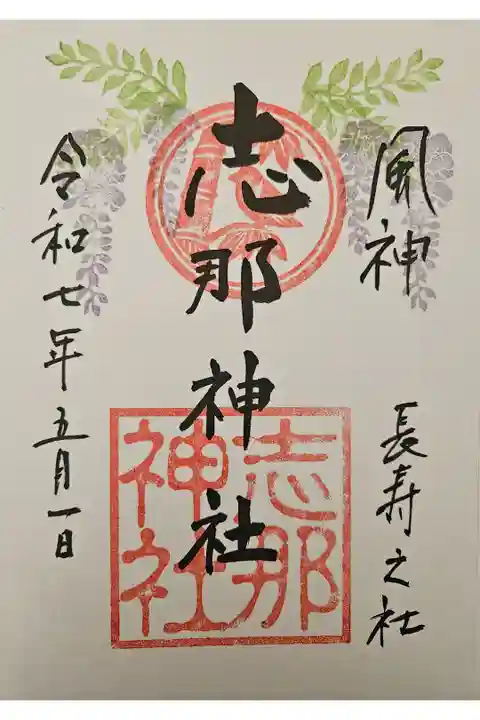 風神
長寿之社
志那神社
令和七年五月一日
志那
神社